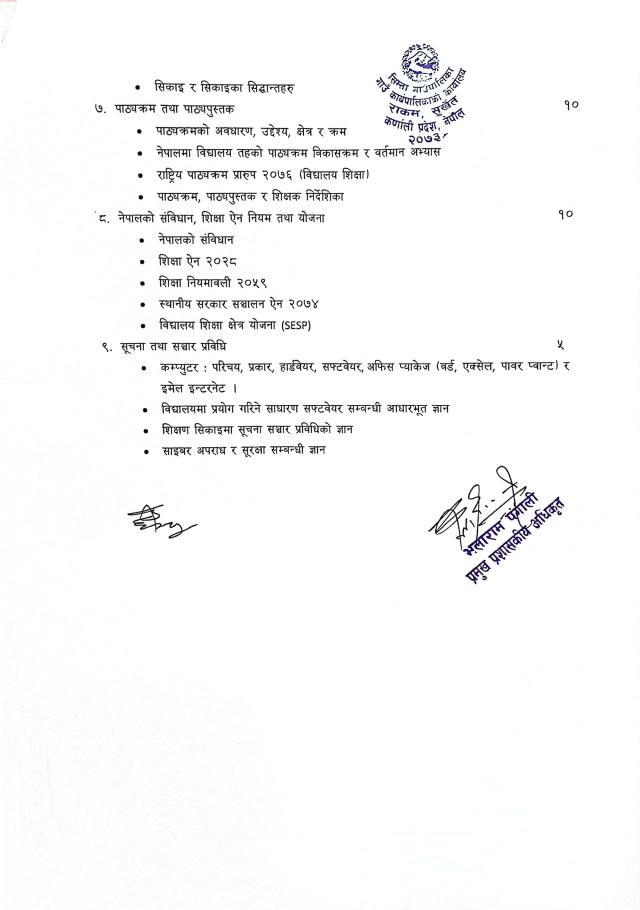 सिम्ता गाउँपालिका
गाउँ कार्यपालिकाको कार्यालय
राकम, सुर्खेत
कर्णाली प्रदेश, नेपाल
२०७३
• सिकाइ र सिकाइका सिद्धान्तहरु
७. पाठ्यक्रम तथा पाठ्यपुस्तक १०
• पाठ्यक्रमको अवधारण, उद्देश्य, क्षेत्र र क्रम
• नेपालमा विद्यालय तहको पाठ्यक्रम विकासक्रम र वर्तमान अभ्यास
• राष्ट्रिय पाठ्यक्रम प्रारुप २०७६ (विद्यालय शिक्षा)
• पाठ्यक्रम, पाठ्यपुस्तक र शिक्षक निर्देशिका
८. नेपालको संविधान, शिक्षा ऐन नियम तथा योजना १०
• नेपालको संविधान
• शिक्षा ऐन २०२८
• शिक्षा नियमावली २०५९
• स्थानीय सरकार सञ्चालन ऐन २०७४
• विद्यालय शिक्षा क्षेत्र योजना (SESP)
९. सूचना तथा सञ्चार प्रविधि ५
• कम्प्युटर : परिचय, प्रकार, हार्डवेयर, सफ्टवेयर, अफिस प्याकेज (वर्ड, एक्सेल, पावर प्वान्ट) र
इमेल इन्टरनेट ।
• विद्यालयमा प्रयोग गरिने साधारण सफ्टवेयर सम्बन्धी आधारभूत ज्ञान
• शिक्षण सिकाइमा सूचना सञ्चार प्रविधिको ज्ञान
• साइबर अपराध र सूरक्षा सम्बन्धी ज्ञान
भलाराम पंगाली
प्रमुख प्रशासकीय अधिकृत